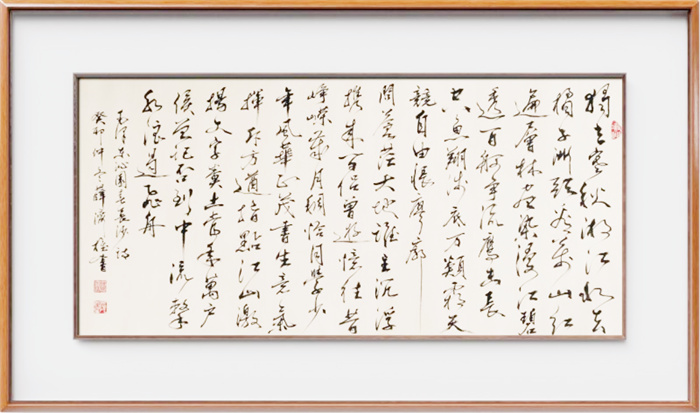 獨立寒秋湘江北去
橘子洲頭看萬山紅
遍層林盡染漫江碧
透百舸爭流鷹擊長
空魚翔淺底萬類霜天
競自由悵寥廓
問蒼茫大地誰主沉浮
攜來百侶曾遊憶往昔
崢嶸歲月稠恰同學少
年風華正茂書生意氣
揮斥方遒指點江山激
揚文字糞土當年萬戶
侯曾記否到中流擊
水浪遏飛舟
毛澤東沁園春長沙詩
癸卯仲冬薛書